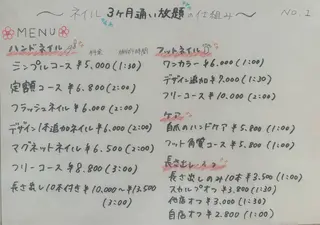 〜ネイル 3ヶ月通い放題の仕組み〜 No.1
MENU
ハンドネイル 料金 施術時間
シンプルコース ¥5.000 (1:30)
定額コース ¥6.800 (2:00)
フラッシュネイル ¥6.000 (2:00)
デザイン1本追加ネイル ¥6.000 (2:00)
マグネットネイル ¥6.500 (2:00)
フリーコース ¥8.800 (3:00)
長さ出し10本付き ¥10.000〜¥13.500
(3:00)
フットネイル
ワンカラー ¥6.000 (1:00)
デザイン追加 ¥9.000 (1:30)
フリーコース ¥10.000 (2:00)
ケア
自爪のハンドケア ¥5.800 (1:00)
フット角質コース ¥5.800 (1:00)
長さ出し
長さ出しのみ10本 ¥3.500 (1:00)
スカルプオフ ¥3.800 (1:30)
他店オフ ¥3.000 (1:00)
自店オフ ¥2.800 (1:00)